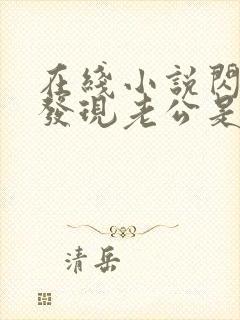 在綫小説閃
發現老公是
清岳